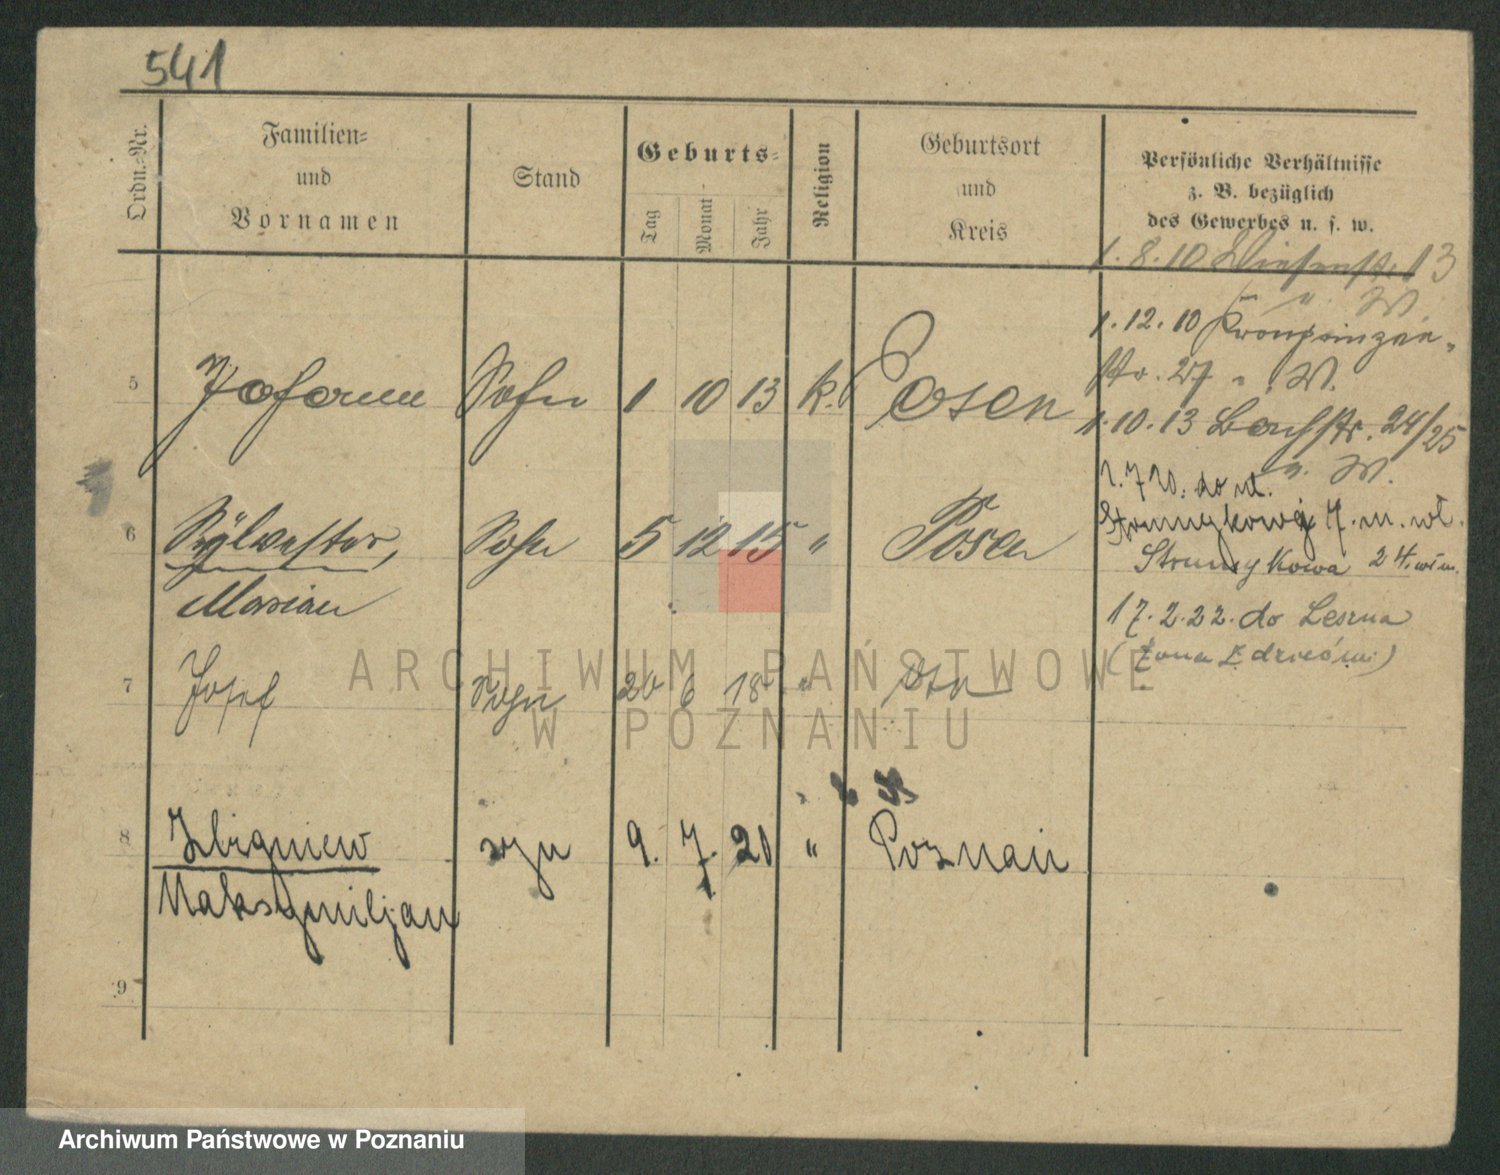 541
Ordn.-Nr.
Familien-
und
Vornamen
Stand
Geburts-
Tag
Monat
Jahr
Religion
Geburtsort
und
Kreis
Persönliche Verhältnisse
z. B. bezüglich
des Gewerbes u. s. w.
1. 8. 10 13
" W.
1. 12. 10 Kronprinzen-
str. 27 " W.
5 Johann Sohn 1 10 13 k. Posen
1. 10. 13 Bachstr. 24/25
" W.
1. 7 20. do ul.
Strumykowej 7. m. wł.
6 Sylvester, Sohn 5 12 15 " Posen
Marian
Strumykowa 24. wł m.
17. 2. 22. do Leszna
(żona z dziećmi)
7 Josef Sohn 26 6 18 "
8 Zbigniew syn 9. 7. 20 " Poznań
Maksymiljan
9
ARCHIWUM PAŃSTWOWE
W POZNANIU
Archiwum Państwowe w Poznaniu